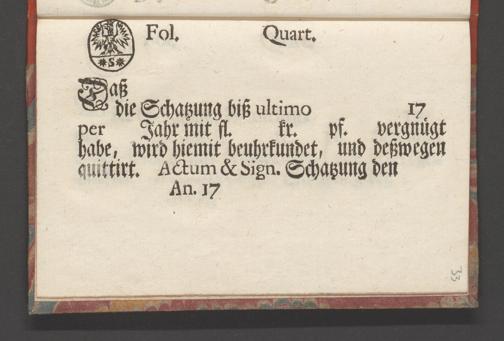 Fol. Quart.
*S*
Daß
die Schatzung biß ultimo 17
per Jahr mit fl. kr. pf. vergnügt
habe, wird hiemit beuhrkundet, und deßwegen
quittirt. Actum & Sign. Schatzung den
An. 17
33